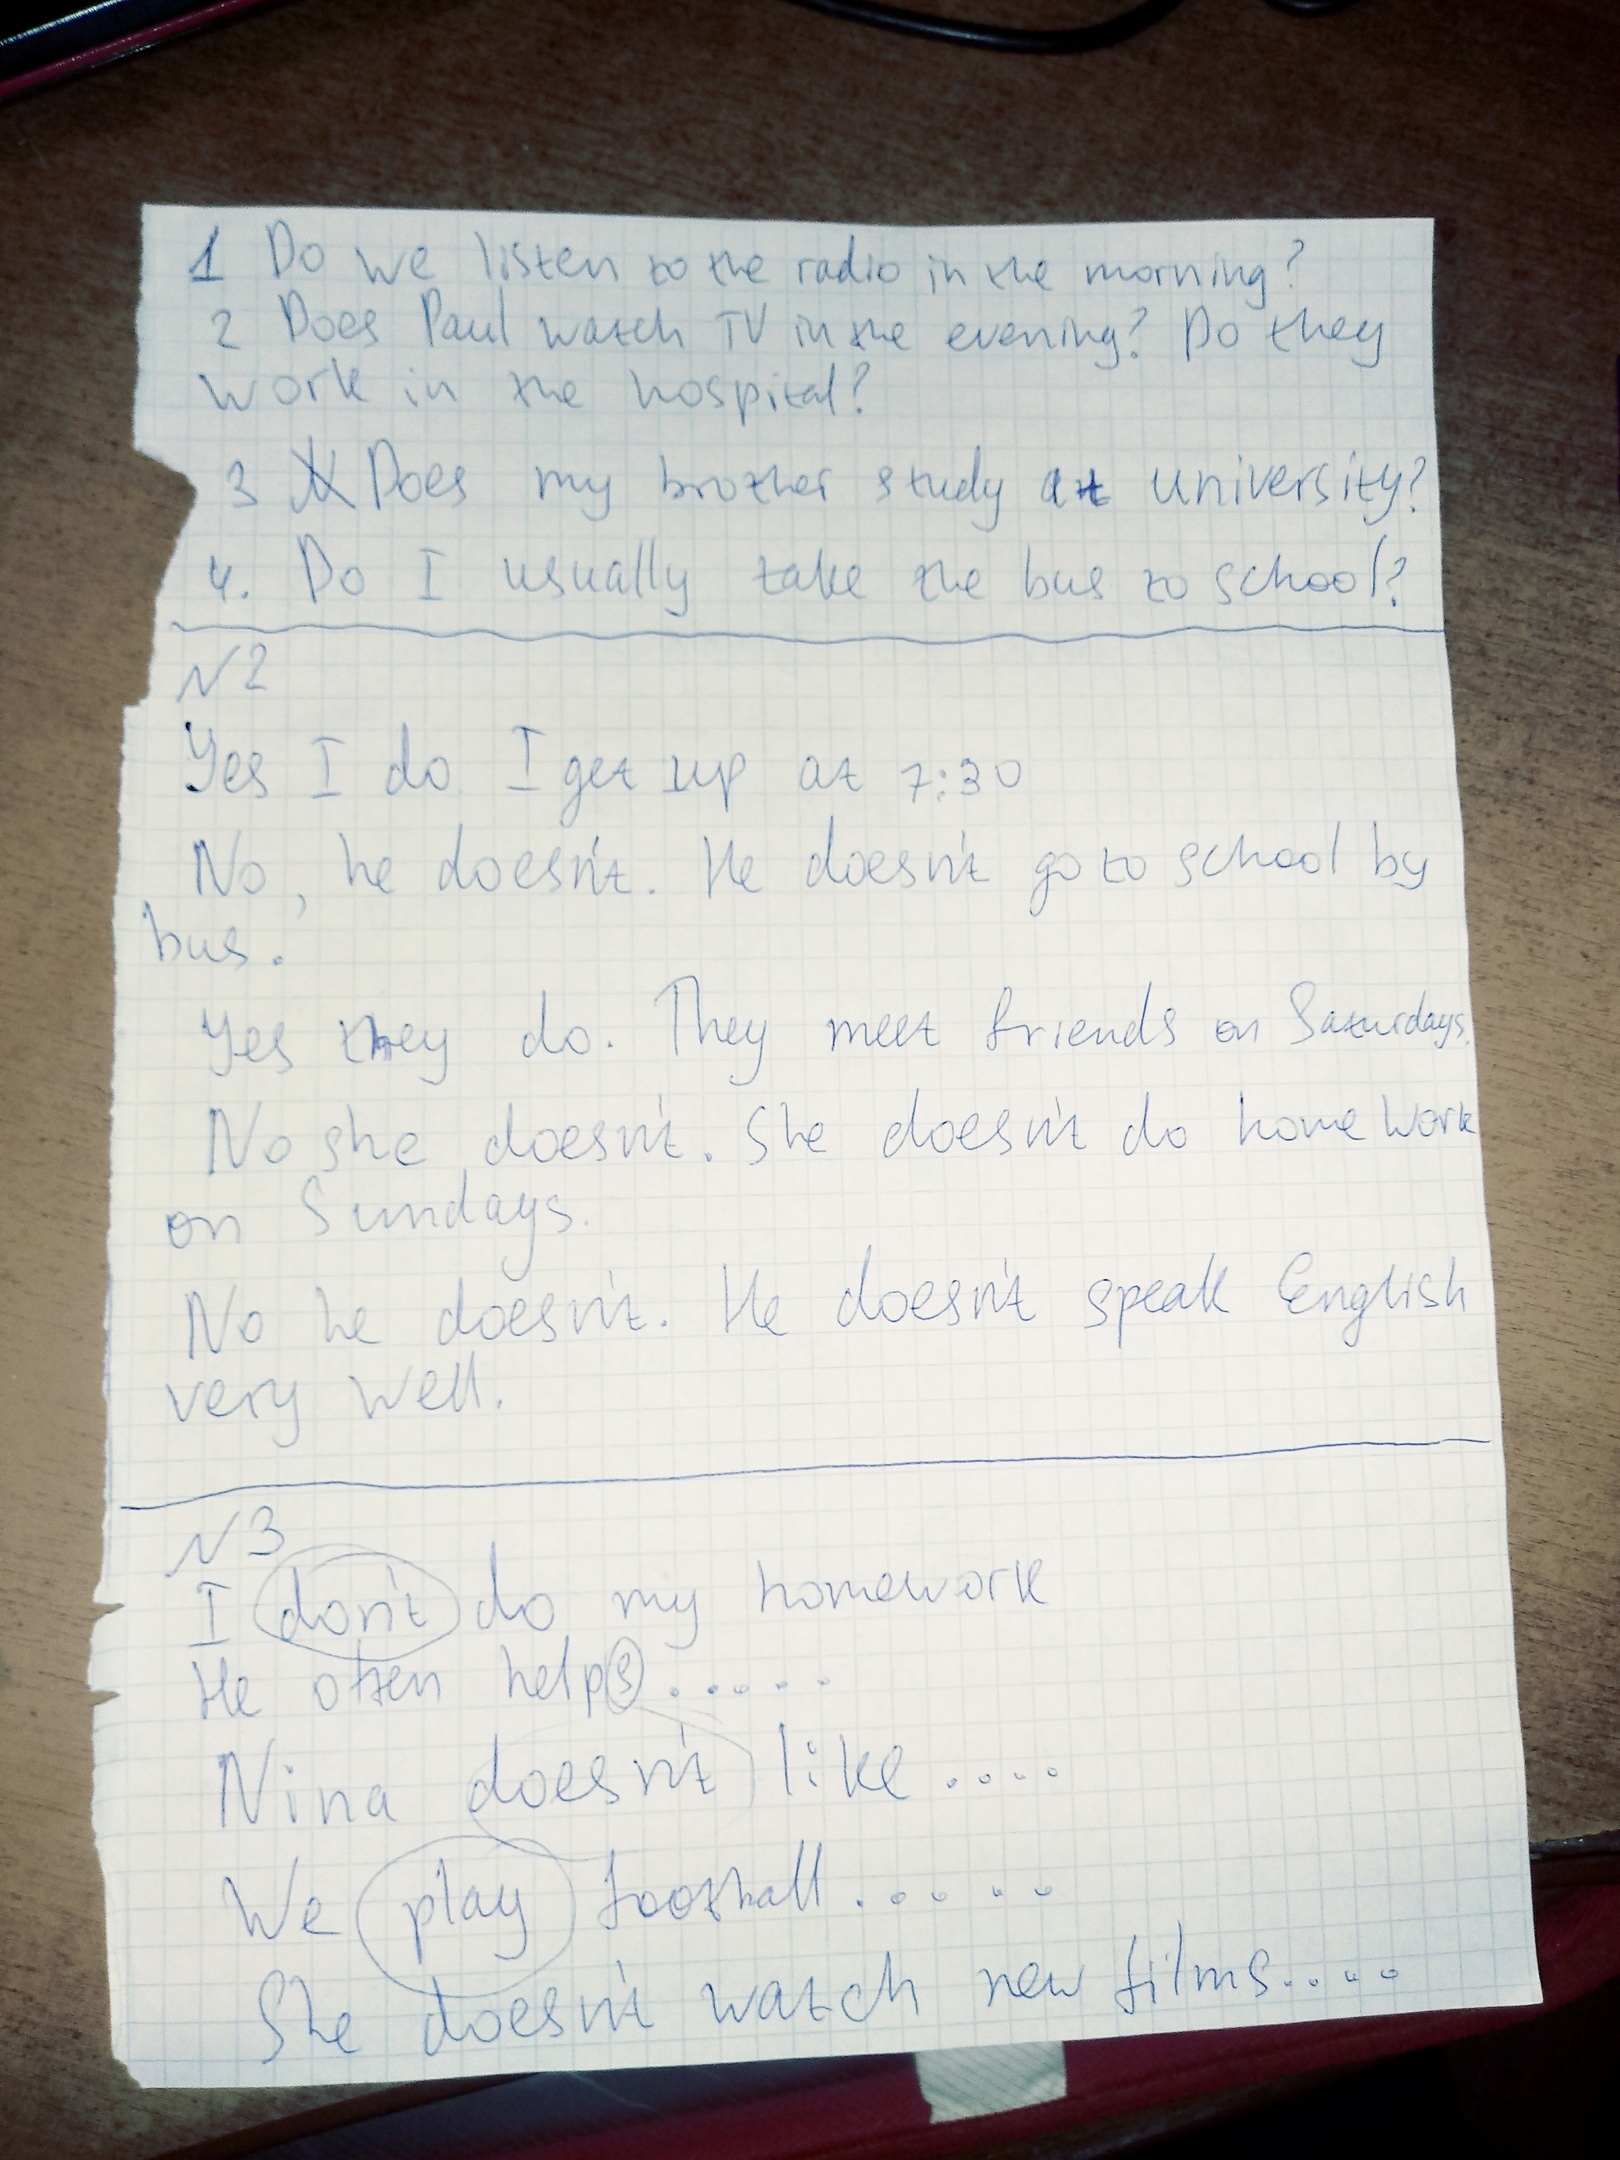 1 Do we listen to the radio in the morning?
2 Does Paul watch TV in the evening? Do they
work in the hospital?
3 Does my brother study at university?
4. Do I usually take the bus to school?
N2
Yes I do. I get up at 7:30
No, he doesn't. He doesn't go to school by
bus.
Yes they do. They meet friends on Saturdays.
No she doesn't. She doesn't do home work
on Sundays.
No he doesn't. He doesn't speak English
very well.
N3
I don't do my homework
He often helps ......
Nina doesn't like ....
We play football .....
She doesn't watch new films.....